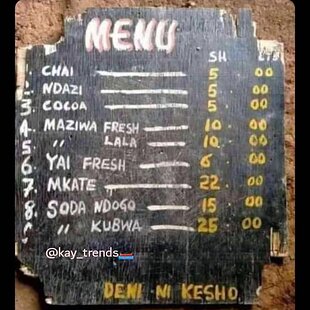 MENU
SH CTS
1. CHAI 5 00
2. NDAZI 5 00
3. COCOA 5 00
4. MAZIWA FRESH 10 00
5 " LALA 10. 00
6 YAI FRESH 6 00
7. MKATE 22. 00
8. SODA NDOGO 15 00
9. " KUBWA 25. 00
@kay_trends
DENI NI KESHO